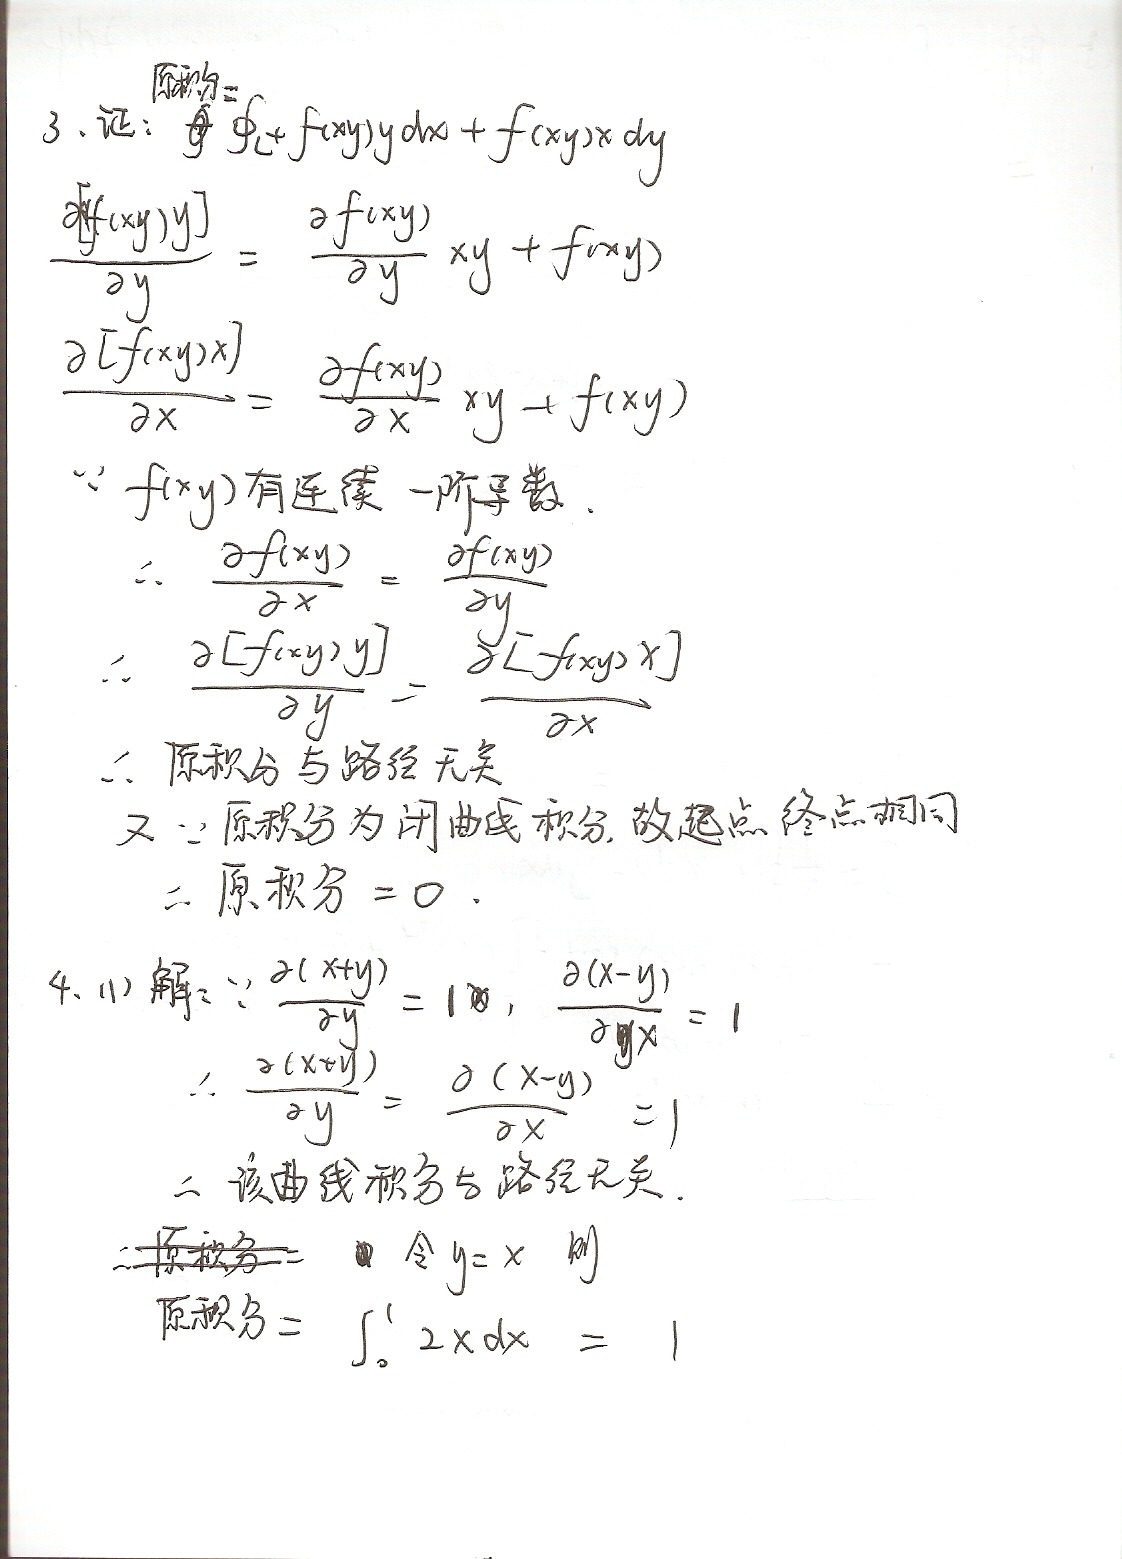 原积分=
3、证: ∮_{L+} f(xy)ydx + f(xy)xdy
∂[f(xy)y]/∂y = ∂f(xy)/∂y xy + f(xy)
∂[f(xy)x]/∂x = ∂f(xy)/∂x xy + f(xy)
∵ f(xy)有连续一阶导数.
∴ ∂f(xy)/∂x = ∂f(xy)/∂y
∴ ∂[f(xy)y]/∂y = ∂[f(xy)x]/∂x
∴ 原积分与路径无关
又∵原积分为闭曲线积分,故起点终点相同
∴ 原积分 = 0.
4、(1) 解: ∵ ∂(x+y)/∂y = 1, ∂(x-y)/∂x = 1
∴ ∂(x+y)/∂y = ∂(x-y)/∂x = 1
∴ 该曲线积分与路径无关.
∴原积分= 令y=x 则
原积分= ∫₀¹ 2xdx = 1